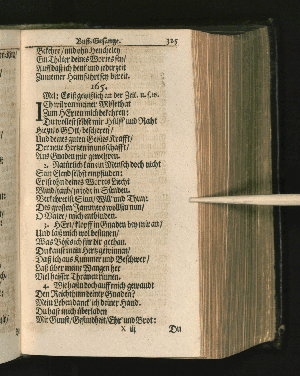 Buß-Gesänge. 325
Bekehre/ und ohn Heucheley
Ein Thäter deines Wortes sey/
Auffdaß ich heut und jederzeit
Zu meiner Heimfahrt sey bereit.
165.
Mel: Es ist gewißlich an der Zeit. u. s. w.
ICh wil von meiner Missethat
Zum HErren mich bekehren:
Du wollest selbst mir Hülff und Raht
Hiezu/ o GOtt/ bescheren/
Und deines guten Geistes Krafft/
Der neue Hertzen in uns schafft/
Aus Gnaden mir gewehren.
2. Natürlich kan ein Mensch doch nicht
Sein Elend selbst empfinden:
Er ist ohn deines Wortes Liecht
Blind/ taub/ ja todt in Sünden.
Verkehrt ist Sinn/ Will' und Thun:
Des grossen Jammers wollst du nun/
O Vater/ mich entbinden.
3. HErr/ klopff in Gnaden bey mir an/
Und laß mich wol besinnen/
Was Böses ich für dir gethan.
Du kanst mein Hertz gewinnen/
Daß ich aus Kummer und Beschwer/
Laß über meine Wangen her
Viel heisser Thränen rinnen.
4. Wie hast du doch auff mich gewandt
Den Reichthum deiner Gnaden?
Mein Leben danck' ich deiner Hand.
Du hast mich überladen
Mit Gunst/ Gesundheit/ Ehr' und Brot:
X iij Du